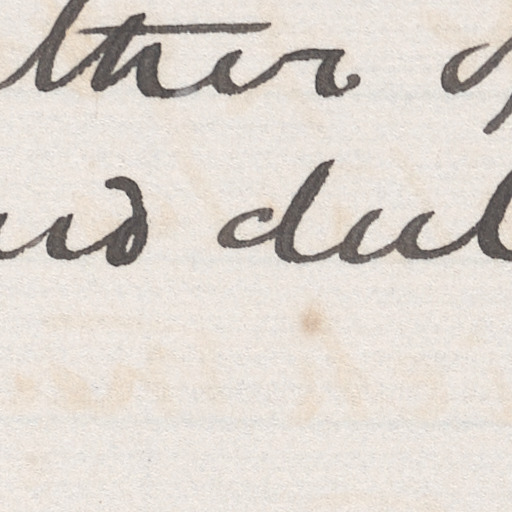 lther o
und dul